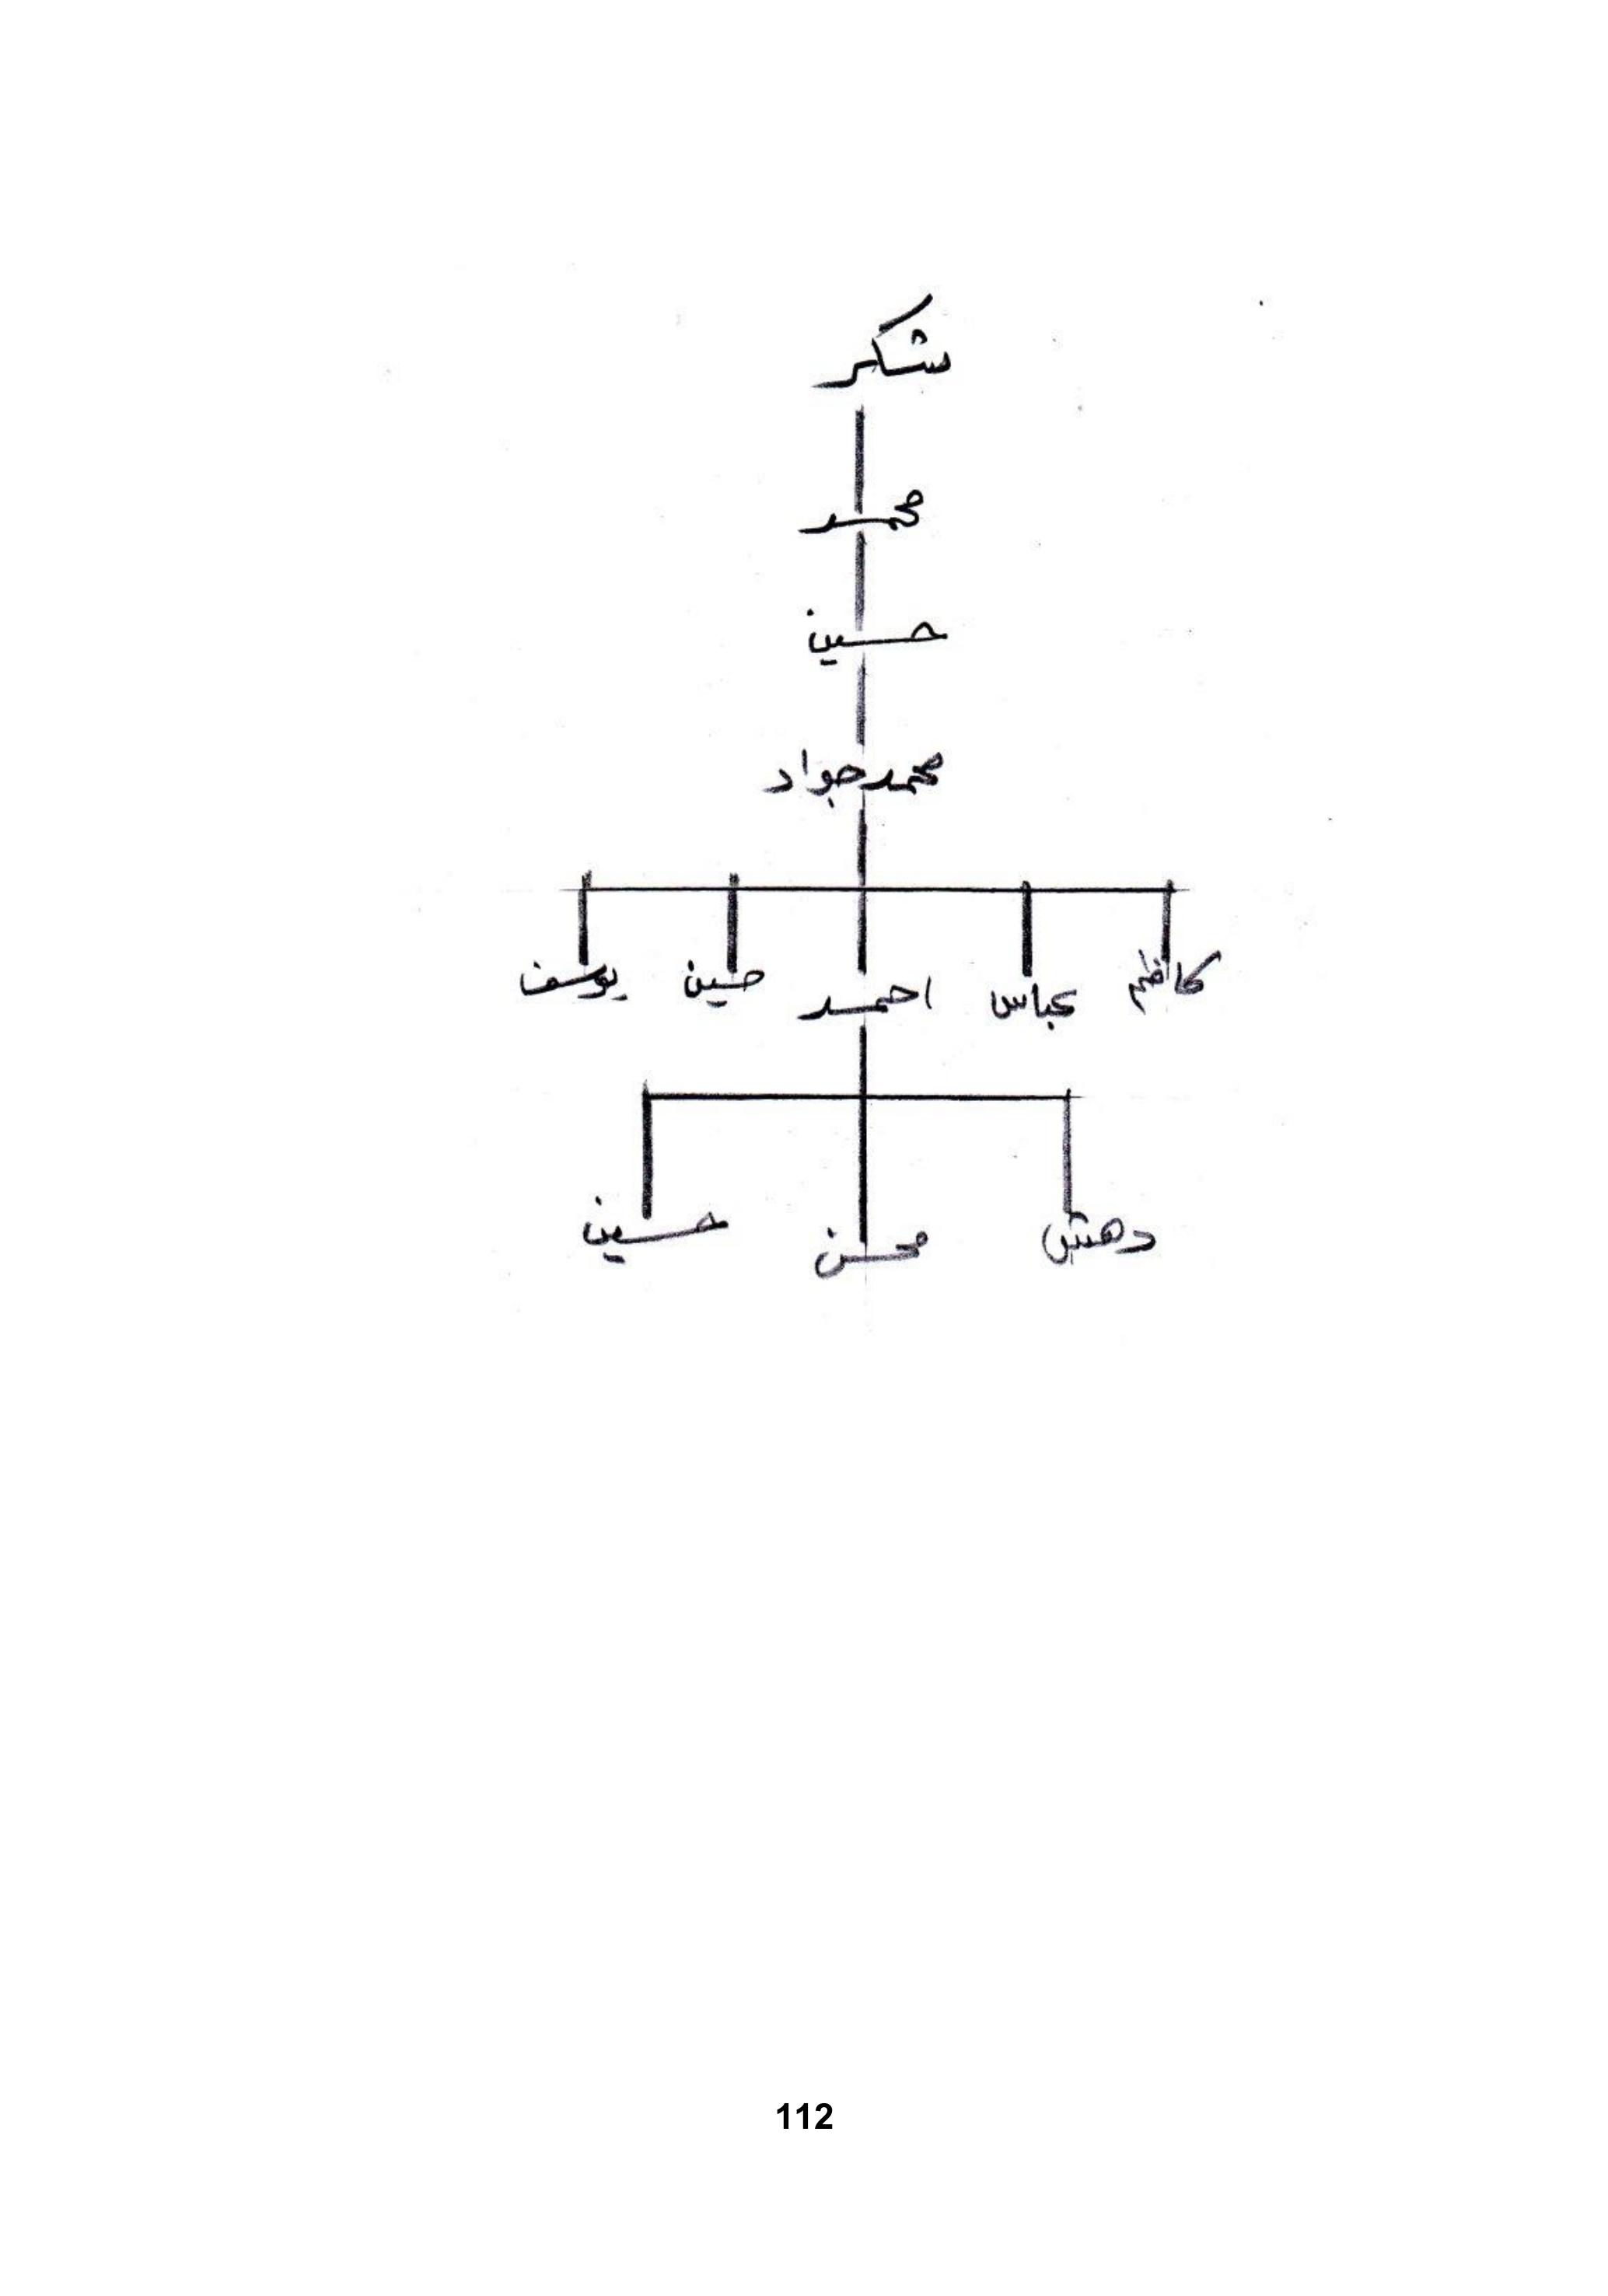 شكر
محمد
حسين
محمد جواد
كاظم عباس احمد حسين يوسف
دهش محسن حسين
112